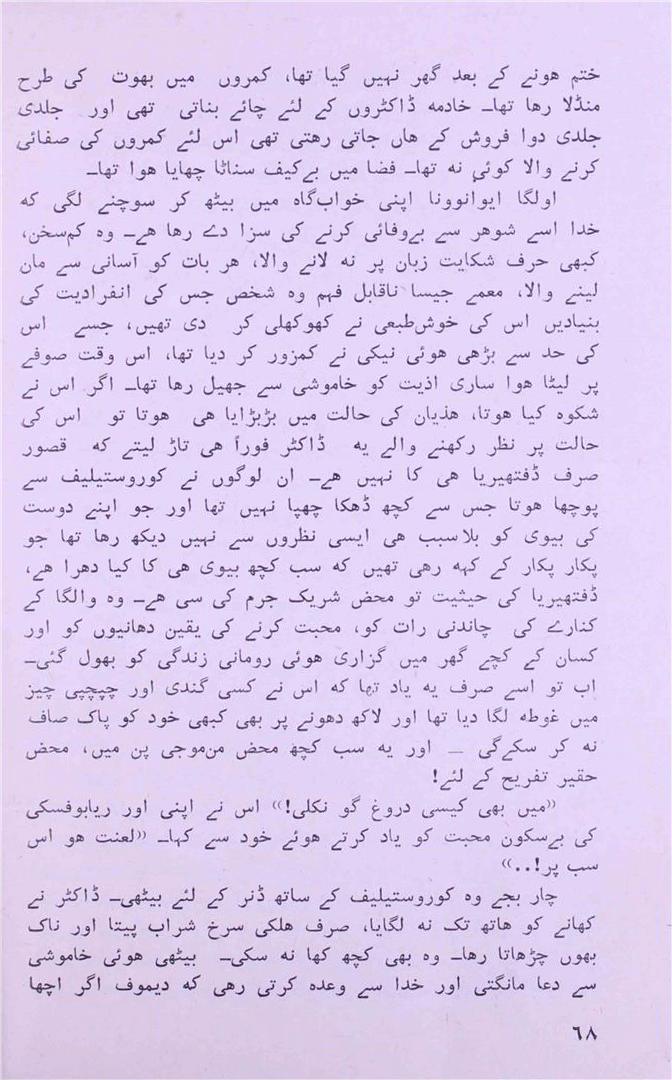 ختم ہونے کے بعد گھر نہیں گیا تھا، کمروں میں بھوت کی طرح
منڈلا رہا تھا۔ خادمہ ڈاکٹروں کے لئے چائے بناتی تھی اور جلدی
جلدی دوا فروش کے ہاں جاتی رہتی تھی اس لئے کمروں کی صفائی
کرنے والا کوئی نہ تھا۔ فضا میں بےکیف سناٹا چھایا ہوا تھا۔
اولگا ایوانوونا اپنی خواب‌گاہ میں بیٹھ کر سوچنے لگی کہ
خدا اسے شوہر سے بےوفائی کرنے کی سزا دے رہا ہے۔ وہ کم‌سخن،
کبھی حرف شکایت زبان پر نہ لانے والا، ہر بات کو آسانی سے مان
لینے والا، معمے جیسا ناقابل فہم وہ شخص جس کی انفرادیت کی
بنیادیں اس کی خوش‌طبعی نے کھوکھلی کر دی تھیں، جسے اس
کی حد سے بڑھی ہوئی نیکی نے کمزور کر دیا تھا، اس وقت صوفے
پر لیٹا ہوا ساری اذیت کو خاموشی سے جھیل رہا تھا۔ اگر اس نے
شکوہ کیا ہوتا، ہذیان کی حالت میں بڑبڑایا ہی ہوتا تو اس کی
حالت پر نظر رکھنے والے یہ ڈاکٹر فوراً ہی تاڑ لیتے کہ قصور
صرف ڈفتھیریا ہی کا نہیں ہے۔ ان لوگوں نے کوروستیلیف سے
پوچھا ہوتا جس سے کچھ ڈھکا چھپا نہیں تھا اور جو اپنے دوست
کی بیوی کو بلاسبب ہی ایسی نظروں سے نہیں دیکھ رہا تھا جو
پکار پکار کے کہہ رہی تھیں کہ سب کچھ بیوی ہی کا کیا دھرا ہے،
ڈفتھیریا کی حیثیت تو محض شریک جرم کی سی ہے۔ وہ والگا کے
کنارے کی چاندنی رات کو، محبت کرنے کی یقین دھانیوں کو اور
کسان کے کچے گھر میں گزاری ہوئی رومانی زندگی کو بھول گئی۔
اب تو اسے صرف یہ یاد تھا کہ اس نے کسی گندی اور چپچپی چیز
میں غوطہ لگا دیا تھا اور لاکھ دھونے پر بھی کبھی خود کو پاک صاف
نہ کر سکے‌گی — اور یہ سب کچھ محض من‌موجی پن میں، محض
حقیر تفریح کے لئے!
«میں بھی کیسی دروغ گو نکلی!» اس نے اپنی اور ریابوفسکی
کی بےسکون محبت کو یاد کرتے ہوئے خود سے کہا۔ «لعنت ہو اس
سب پر!..»
چار بجے وہ کوروستیلیف کے ساتھ ڈنر کے لئے بیٹھی۔ ڈاکٹر نے
کھانے کو ہاتھ تک نہ لگایا، صرف ہلکی سرخ شراب پیتا اور ناک
بھوں چڑھاتا رہا۔ وہ بھی کچھ کھا نہ سکی۔ بیٹھی ہوئی خاموشی
سے دعا مانگتی اور خدا سے وعدہ کرتی رہی کہ دیموف اگر اچھا
۶۸